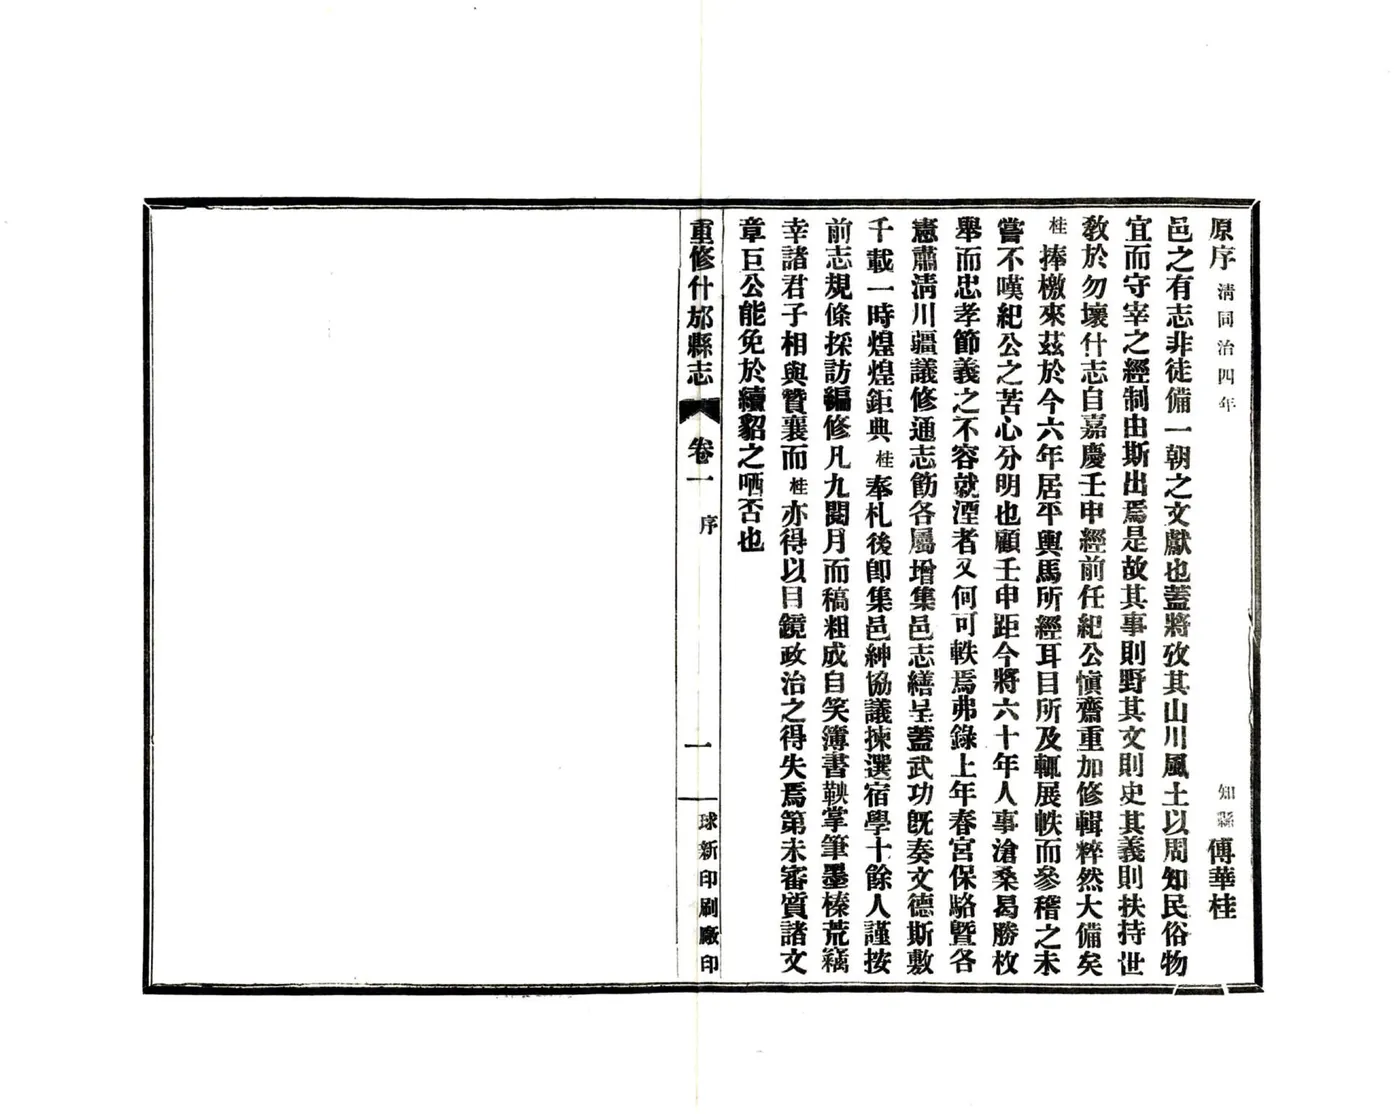 原序 清同治四年 知縣 傅華桂
邑之有志非徒備一朝之文獻也蓋將攷其山川風土以周知民俗物
宜而守宰之經制由斯出焉是故其事則野其文則史其義則扶持世
敎於勿壞什志自嘉慶壬申經前任紀公愼齋重加修輯粹然大備矣
桂捧檄來茲於今六年居平輿馬所經耳目所及輒展帙而參稽之未
嘗不嘆紀公之苦心分明也顧壬申距今將六十年人事滄桑曷勝枚
舉而忠孝節義之不容就湮者又何可軼焉弗錄上年春宮保駱曁各
憲肅淸川疆議修通志飭各屬增集邑志繕呈蓋武功旣奏文德斯敷
千載一時煌煌鉅典桂奉札後卽集邑紳協議揀選宿學十餘人謹按
前志規條採訪編修凡九閱月而稿粗成自笑簿書鞅掌筆墨榛荒竊
幸諸君子相與贊襄而桂亦得以目鏡政治之得失焉第未審質諸文
章巨公能免於續貂之哂否也
重修什邡縣志 卷一 序 一 球新印刷廠印